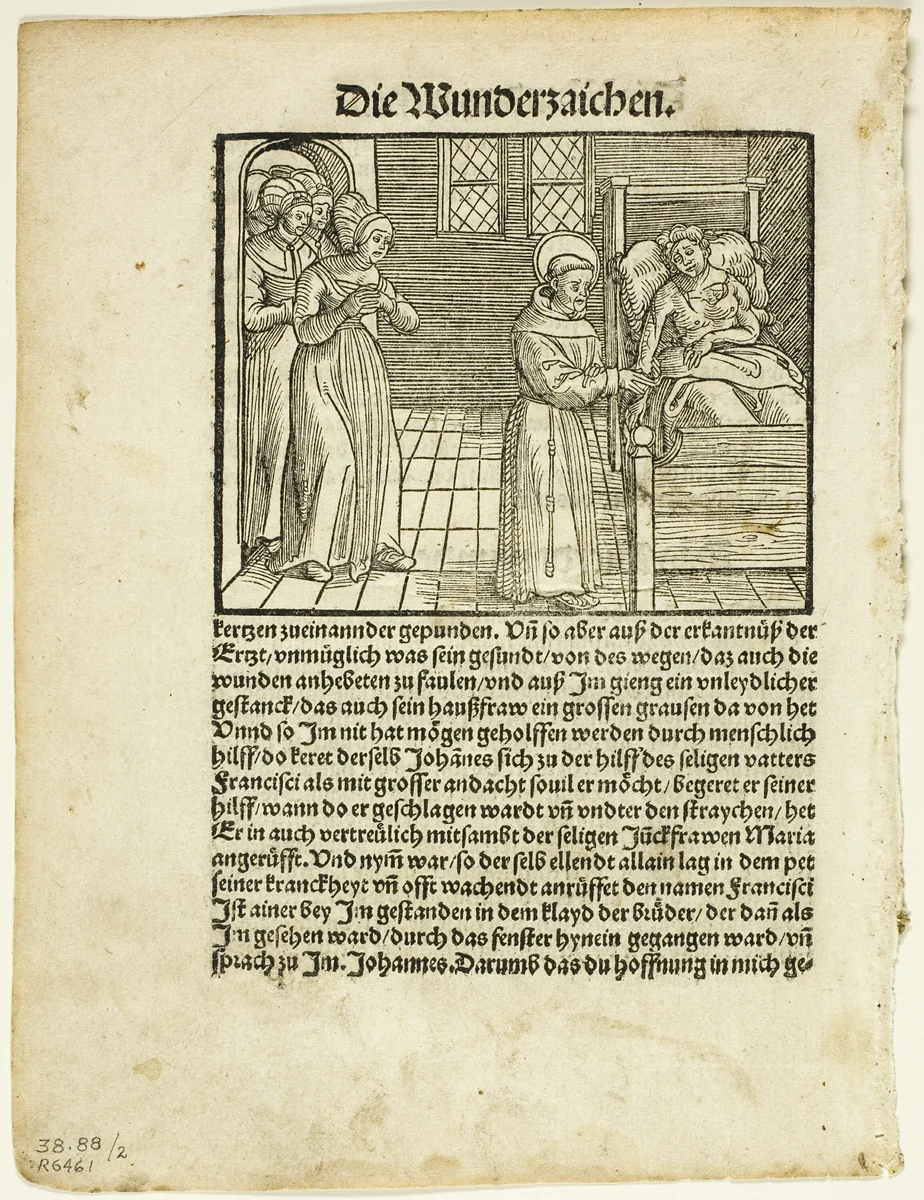 Die Wunderzaichen.
kertzen zueinannder gepunden. Vn̄ so aber auß der erkantnüß der
Ertzt/vnmüglich was sein gesundt/von des wegen/daz auch die
wunden anhebeten zu faulen/vnd auß Im gieng ein vnleydlicher
gestanck/das auch sein haußfraw ein grossen grausen da von het
Vnnd so Im nit hat mögen geholffen werden durch menschlich
hilff/do keret derselb Johānes sich zu der hilff des seligen vatters
Francisci als mit grosser andacht souil er möcht/begeret er seiner
hilff/wann do er geschlagen wardt vn̄ vndter den straychen/het
Er in auch vertreülich mitsambt der seligen Jūckfrawen Maria
angerüfft. Vnd nym̄ war/so der selb ellendt allain lag in dem pet
seiner kranckheyt vn̄ offt wachendt anrüffet den namen Francisci
Ist ainer bey Im gestanden in dem klayd der brüder/der dan̄ als
Im gesehen ward/durch das fenster hynein gegangen ward/vn̄
sprach zu Im. Johannes. Darumb das du hoffnung in mich ge⸗
38.88/2
R6461